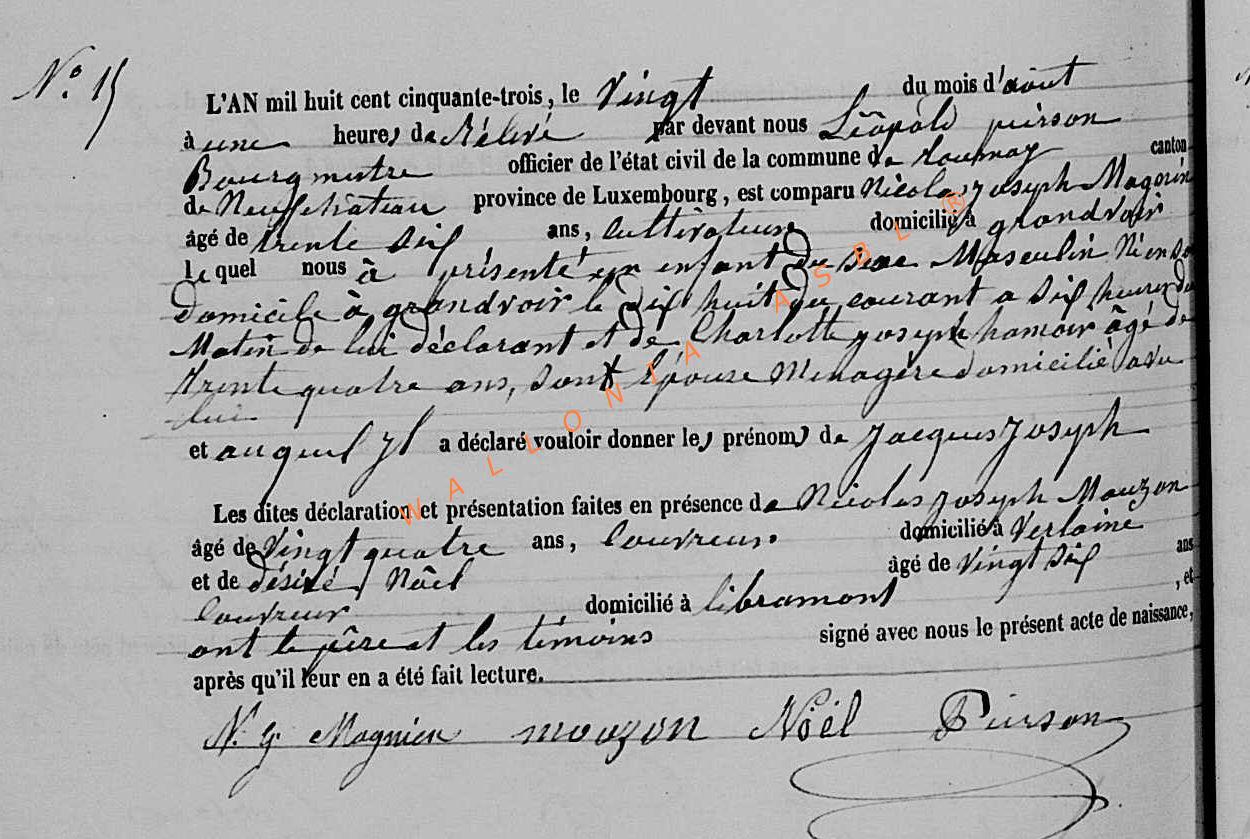 N.° 15
L'AN mil huit cent cinquante-trois, le Vingt du mois d'août
à une heures de Rélevé par devant nous Léopold pierson
Bourgmestre officier de l'état civil de la commune de tournay canton
de Neufchâteau province de Luxembourg, est comparu Nicolas Joseph Magonin
âgé de trente six ans, Cultivateur domicilié à grandvoir
lequel nous à présenté un enfant du sexe Masculin Né en son
domicile à grandvoir le dix huit du courant a six heures du
Matin de lui déclarant et de Charlotte joseph hamoir âgé de
trente quatre ans, sont Epouse Menagère domicilié avec
lui
et auquel Jl a déclaré vouloir donner les prénoms de Jacques Joseph
Les dites déclaration et présentation faites en présence de Nicolas Joseph Mouzon
âgé de Vingt quatre ans, Couvreur domicilié à Verlaine
et de désiré Nôel âgé de Vingt six ans
Couvreur domicilié à libramont, et
ont le père et les témoins signé avec nous le présent acte de naissance,
après qu'il leur en a été fait lecture.
N. J. Magnien mouzon Noël Pierson
WALLONIA ASBL ®